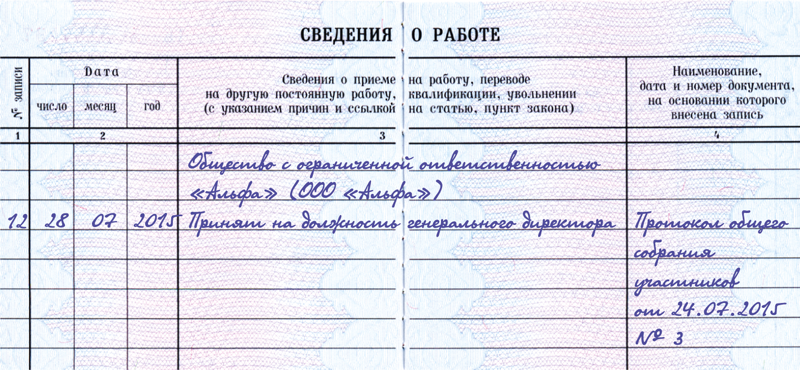 СВЕДЕНИЯ О РАБОТЕ
№ записи
Дата
число месяц год
Сведения о приеме на работу, переводе
на другую постоянную работу, квалификации, увольнении
(с указанием причин и ссылкой на статью, пункт закона)
Наименование,
дата и номер документа,
на основании которого
внесена запись
1 2 3 4
Общество с ограниченной ответственностью
«Альфа» (ООО «Альфа»)
12 28 07 2015 Принят на должность генерального директора Протокол общего
собрания
участников
от 24.07.2015
№ 3